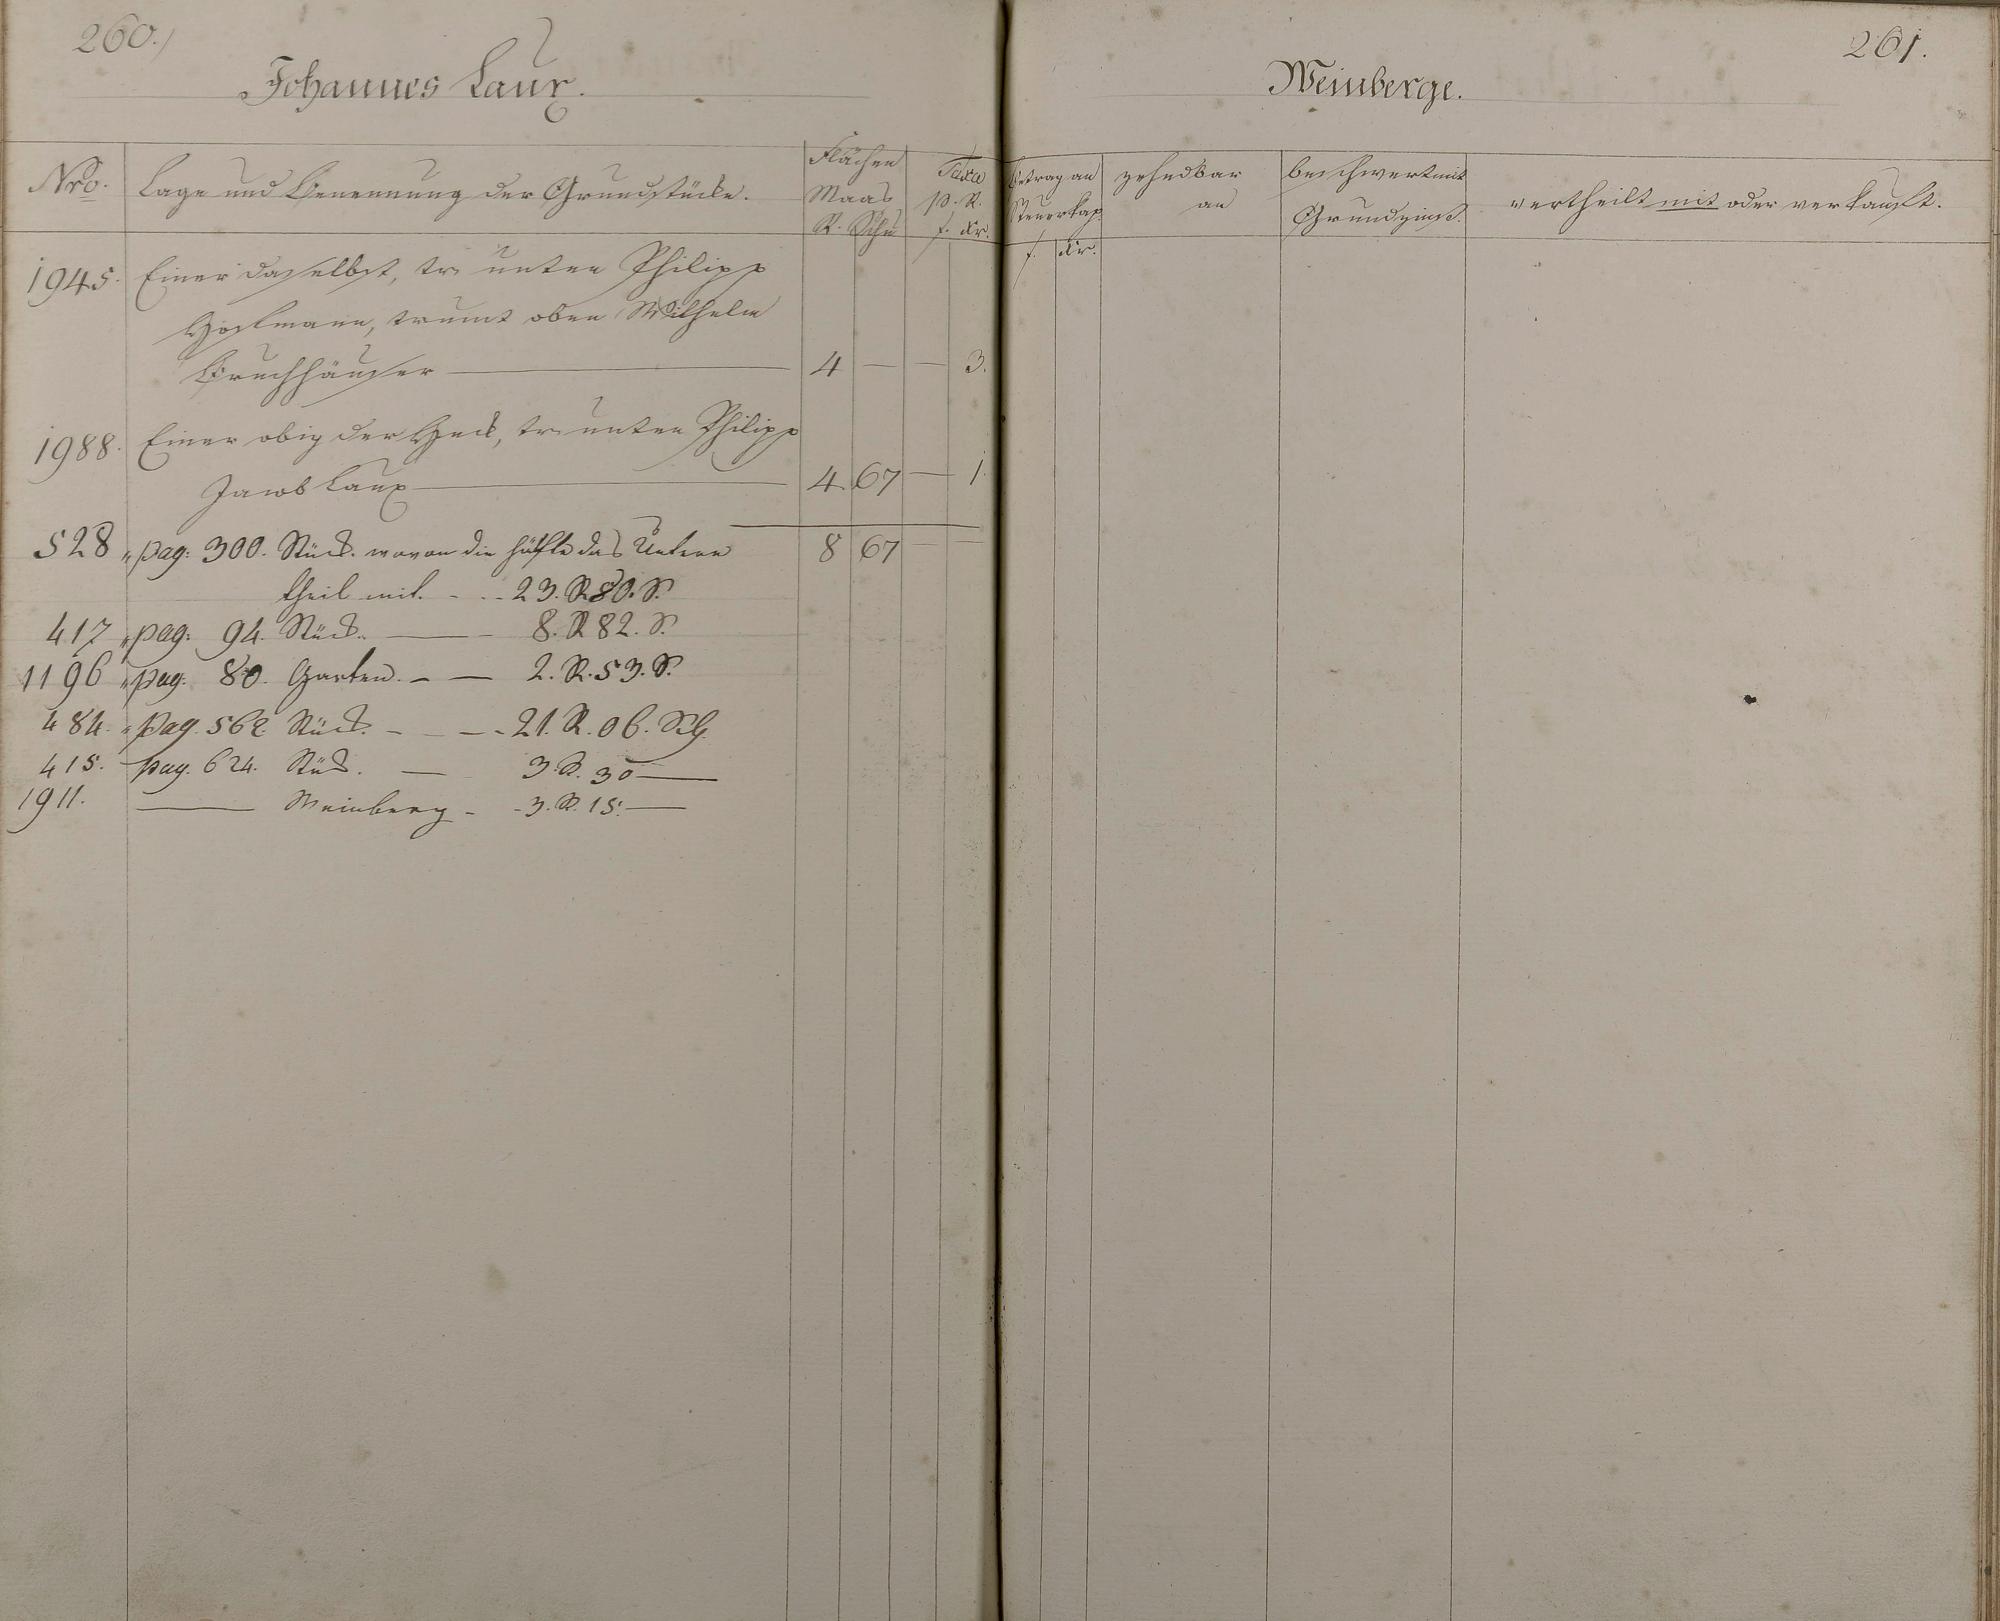 260.)
Johannes Laux.
Nro. Lage und Benennung der Grundstücke. Flächen Maas R. Schu Taxa p. R. f. Kr.
1945. Einer daselbst, tr. unten Philipp
Hofmann, trumt oben Wilhelm
Bruchhäuser — 4 — — 3.
1988. Einer obig der Heck, tr. unten Philipp
Jacob Laux — 4. 67 — 1.
528 " pag: 300. Stück. wovon die hälfte das Untere 8 67 — —
theil mit. - - - 23. R 80. S.
417 " pag: 94. Stück. — 8. R 82. S.
1196 " pag: 80. Garten. — — 2. R. 53. S.
484. " pag. 562. Stück. - — - 21. R. 06. Sch.
415. pag. 624. Stück. — 3. R. 30 —
1911. — Weinberg - - 3. R. 15. —
261.
Weinberge.
Betrag an Steuerkap. f. Kr. zehndbar an beschwert mit Grundzinß. vertheilt mit oder verkauft.